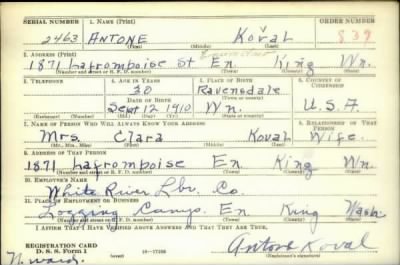 SERIAL NUMBER 1. NAME (Print) ORDER NUMBER
2463 ANTONE Koval 839
(First) (Middle) (Last)
2. ADDRESS (Print)
1871 Lafromboise St En. King Wn.
(Number and street or R. F. D. number) (Town) (County) (State)
3. TELEPHONE 4. AGE IN YEARS 5. PLACE OF BIRTH 6. COUNTRY OF CITIZENSHIP
30 Ravensdale
DATE OF BIRTH (Town or county)
Sept 12 1910 Wn. U.S.A
(Exchange) (Number) (Mo.) (Day) (Yr.) (State or country)
7. NAME OF PERSON WHO WILL ALWAYS KNOW YOUR ADDRESS 8. RELATIONSHIP OF THAT PERSON
Mrs. Clara Koval Wife.
(Mr., Mrs., Miss) (First) (Middle) (Last)
9. ADDRESS OF THAT PERSON
1871 Lafromboise En King Wn
(Number and street or R. F. D. number) (Town) (County) (State)
10. EMPLOYER'S NAME
White River Lbr. Co.
11. PLACE OF EMPLOYMENT OR BUSINESS
Logging Camps. En King Wash
(Number and street or R. F. D. number) (Town) (County) (State)
I AFFIRM THAT I HAVE VERIFIED ABOVE ANSWERS AND THAT THEY ARE TRUE.
REGISTRATION CARD
D. S. S. Form 1 (over) 16-17105 Antone Koval
(Registrant's signature)
N. ward.